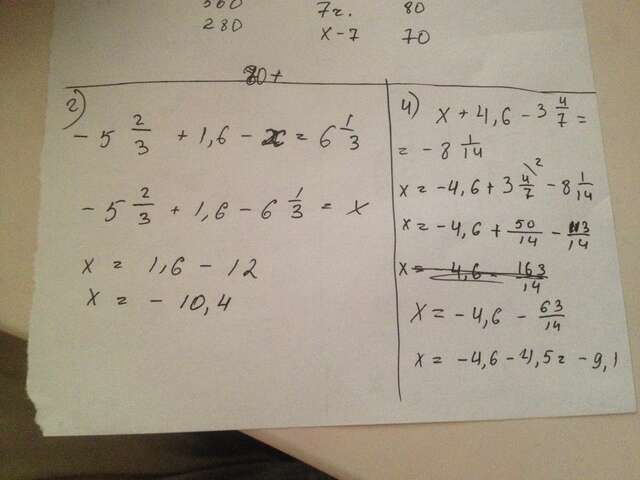 560 7г. 80
280 x-7 70
80+
2)
- 5 2/3 + 1,6 - x = 6 1/3
- 5 2/3 + 1,6 - 6 1/3 = x
x = 1,6 - 12
x = - 10,4
4) x + 4,6 - 3 4/7 =
= - 8 1/14
x = -4,6 + 3 4/7 \2 - 8 1/14
x = -4,6 + 50/14 - 113/14
x = 4,6 - 163/14
x = -4,6 - 63/14
x = -4,6 - 4,5 = -9,1